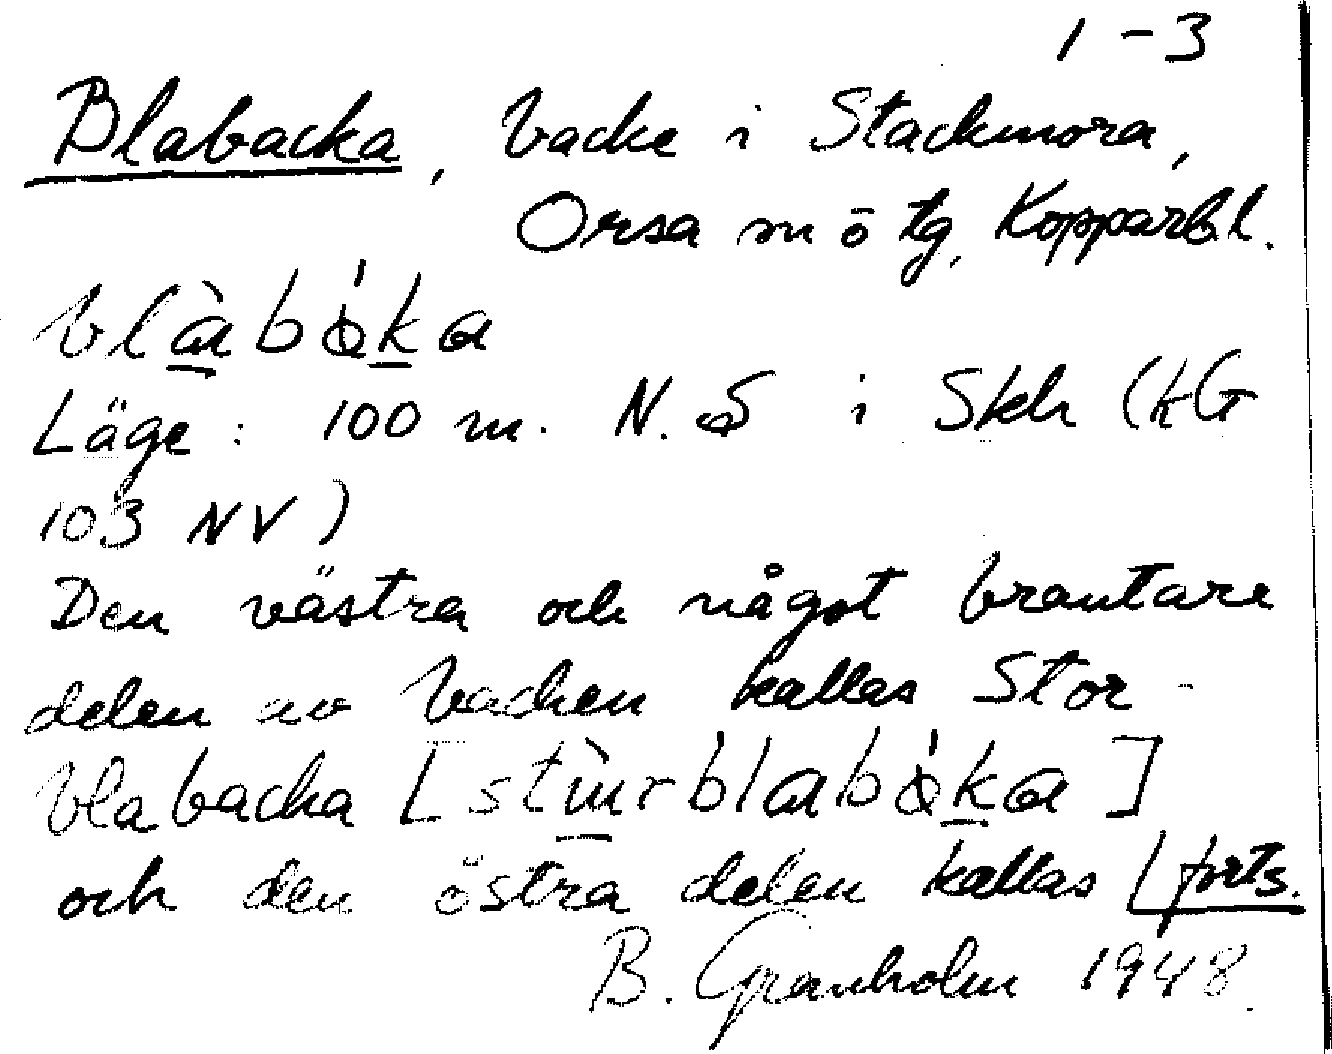 1-3
Blabacka, backe i Stackmora,
Orsa m ö tg, Kopparb.l.
blàbák̲a
Läge: 100 m. N. S i Skh (kG
103 NV)
Den västra och något brantare
delen av backen kallas Stor-
blabacka [stùrblabák̲a]
och den östra delen kallas / forts.
B. Granholm 1948.